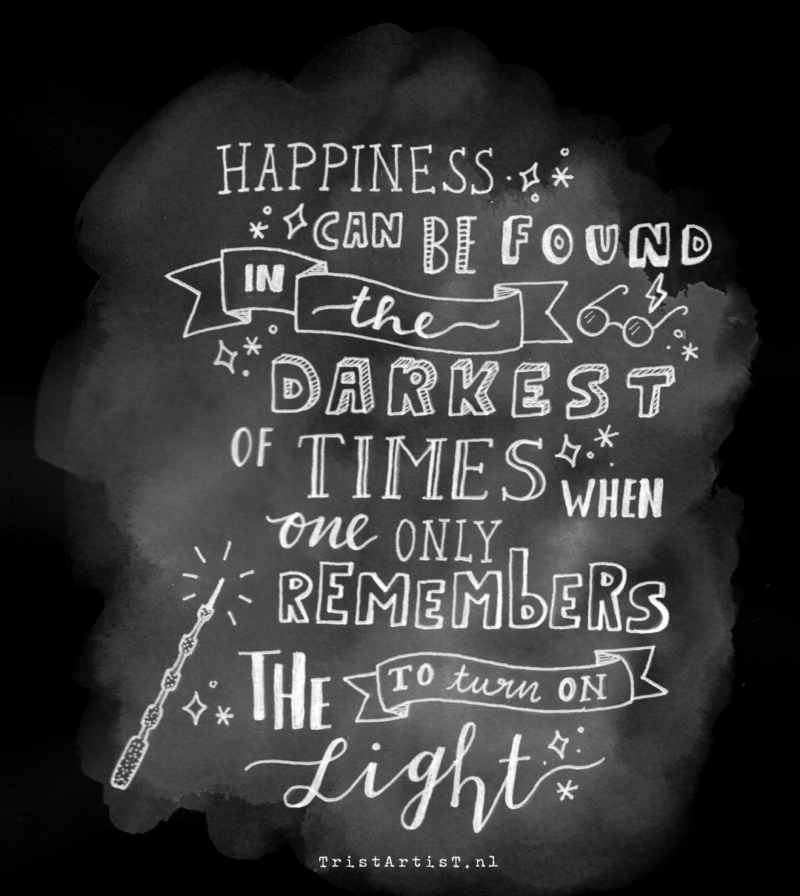 HAPPINESS
CAN BE FOUND
IN the
DARKEST
OF TIMES WHEN
one ONLY
REMEMbERS
THE TO turn ON
Light
TristArtisT.nl